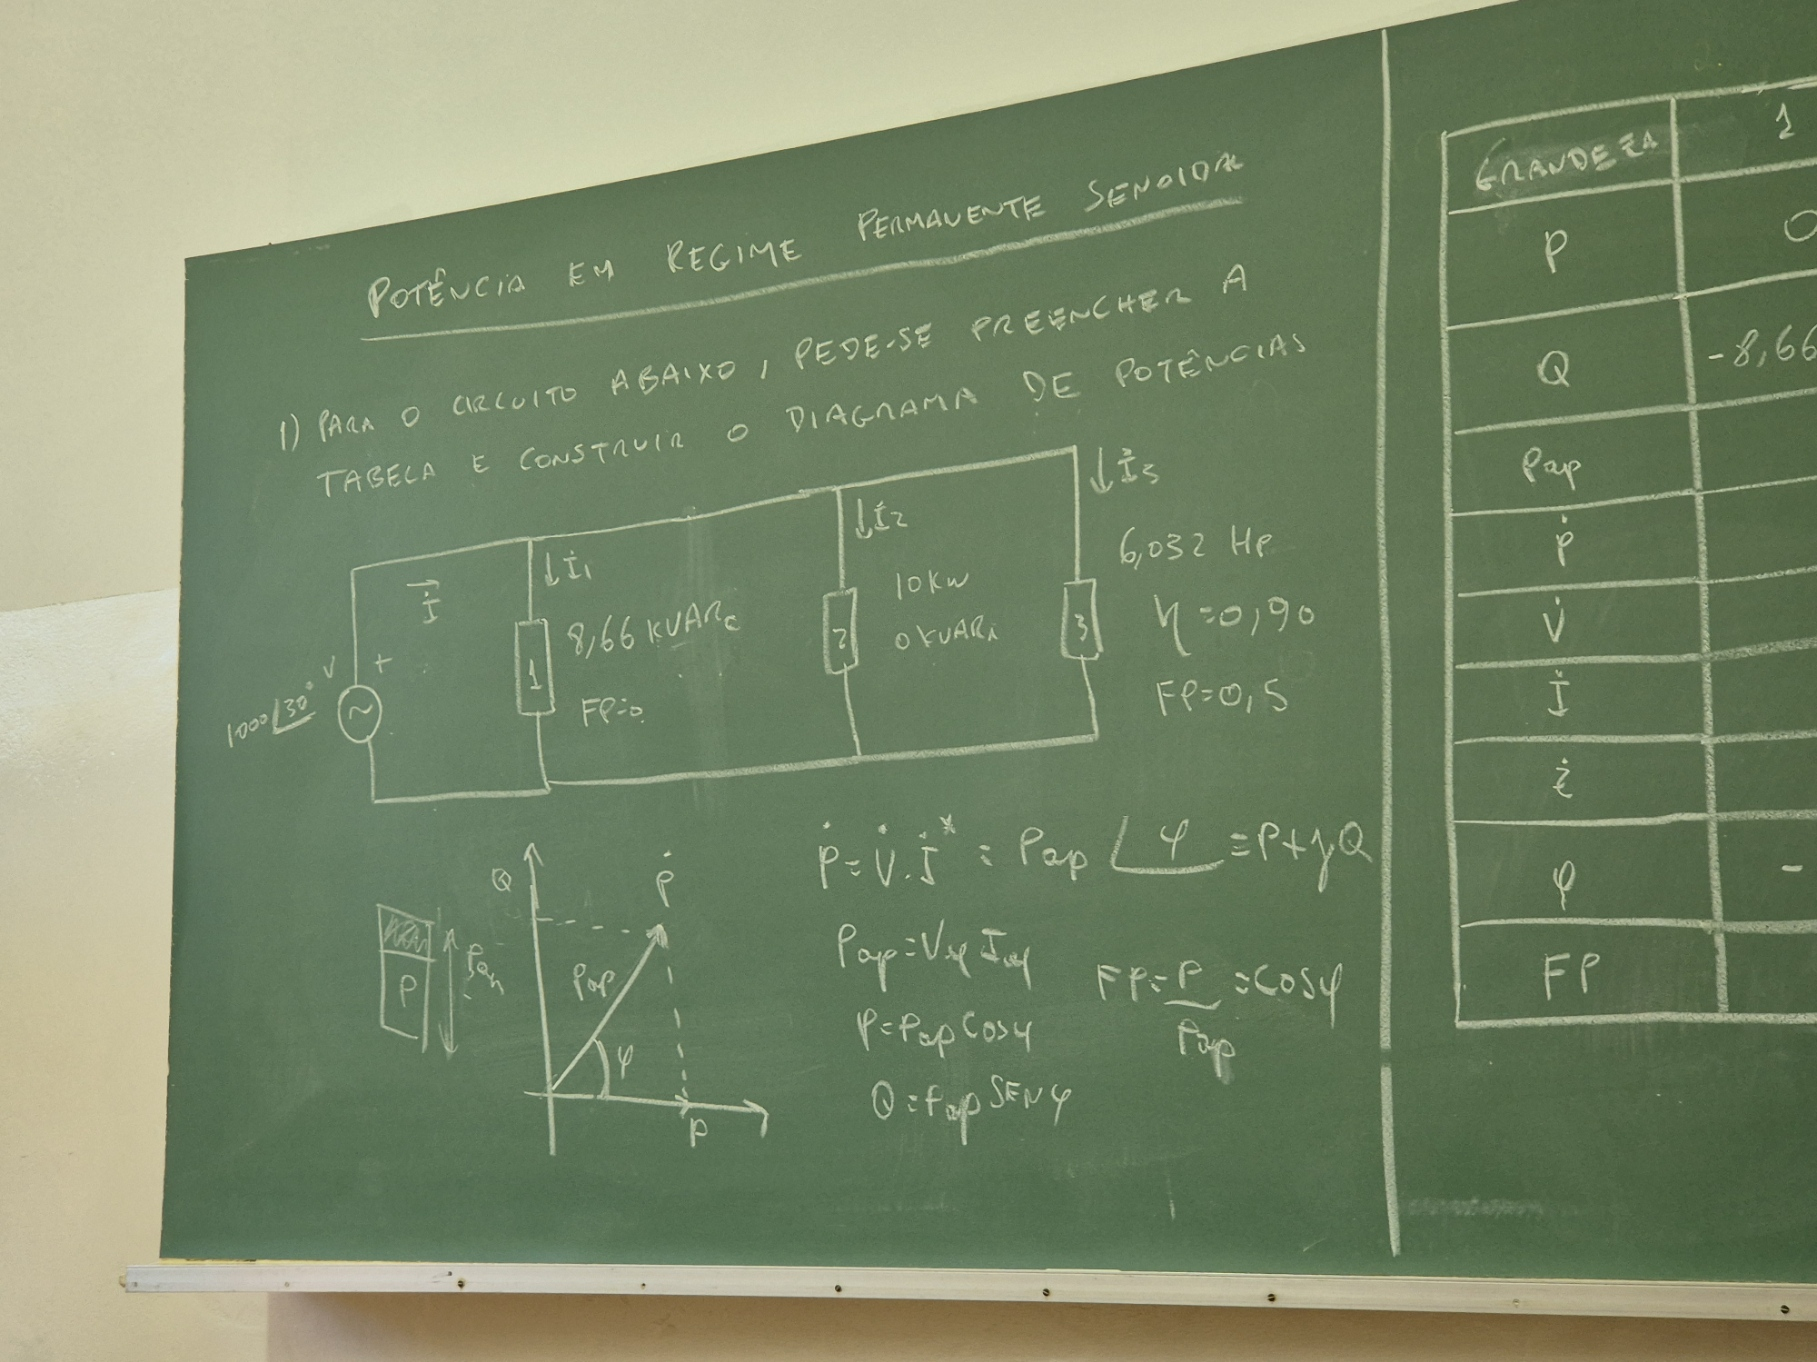 POTÊNCIA EM REGIME PERMANENTE SENOIDAL
1) PARA O CIRCUITO ABAIXO, PEDE-SE PREENCHER A
TABELA E CONSTRUIR O DIAGRAMA DE POTÊNCIAS
1000∠30° V
+
~
İ
↓İ1
1
8,66 KVARc
FP=0
↓İ2
2
10KW
0 KVARi
↓İ3
3
6,032 HP
η=0,90
FP=0,5
Q
Ṗ
Pap
φ
P
P
Ṗ=V̇.İ* = Pap∠φ = P+jQ
Pap=Vef Ief
P=Pap Cosφ
Q=Pap SENφ
FP=P/Pap=Cosφ
GRANDEZA 1
P 0
Q -8,66
Pap
Ṗ
V̇
İ
Ż
φ -
FP